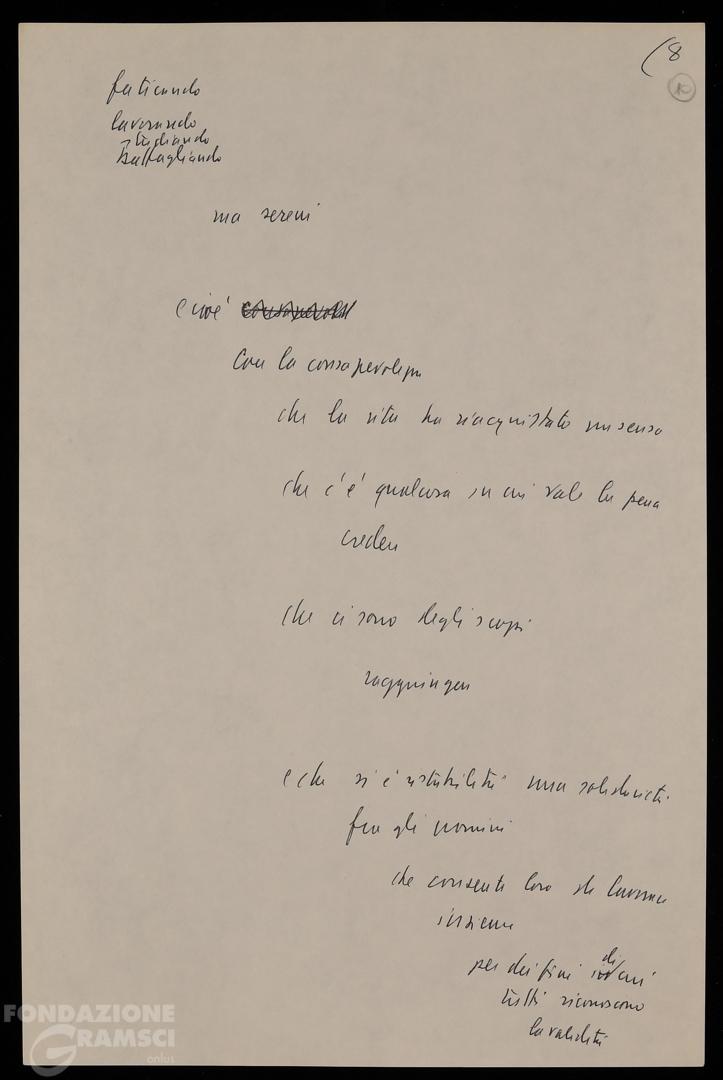 (8
faticando
lavorando
studiando
battagliando
ma sereni
e cioè consapevoli
con la consapevolezza
che la vita ha riacquistato un senso
che c'è qualcosa in cui vale la pena
credere
che ci sono degli scopi
raggiungere
e che si è ristabilita una solidarietà
fra gli uomini
che consente loro di lavorare
insieme
per dei fini di cui
tutti riconoscono
la validità
FONDAZIONE
GRAMSCI
onlus